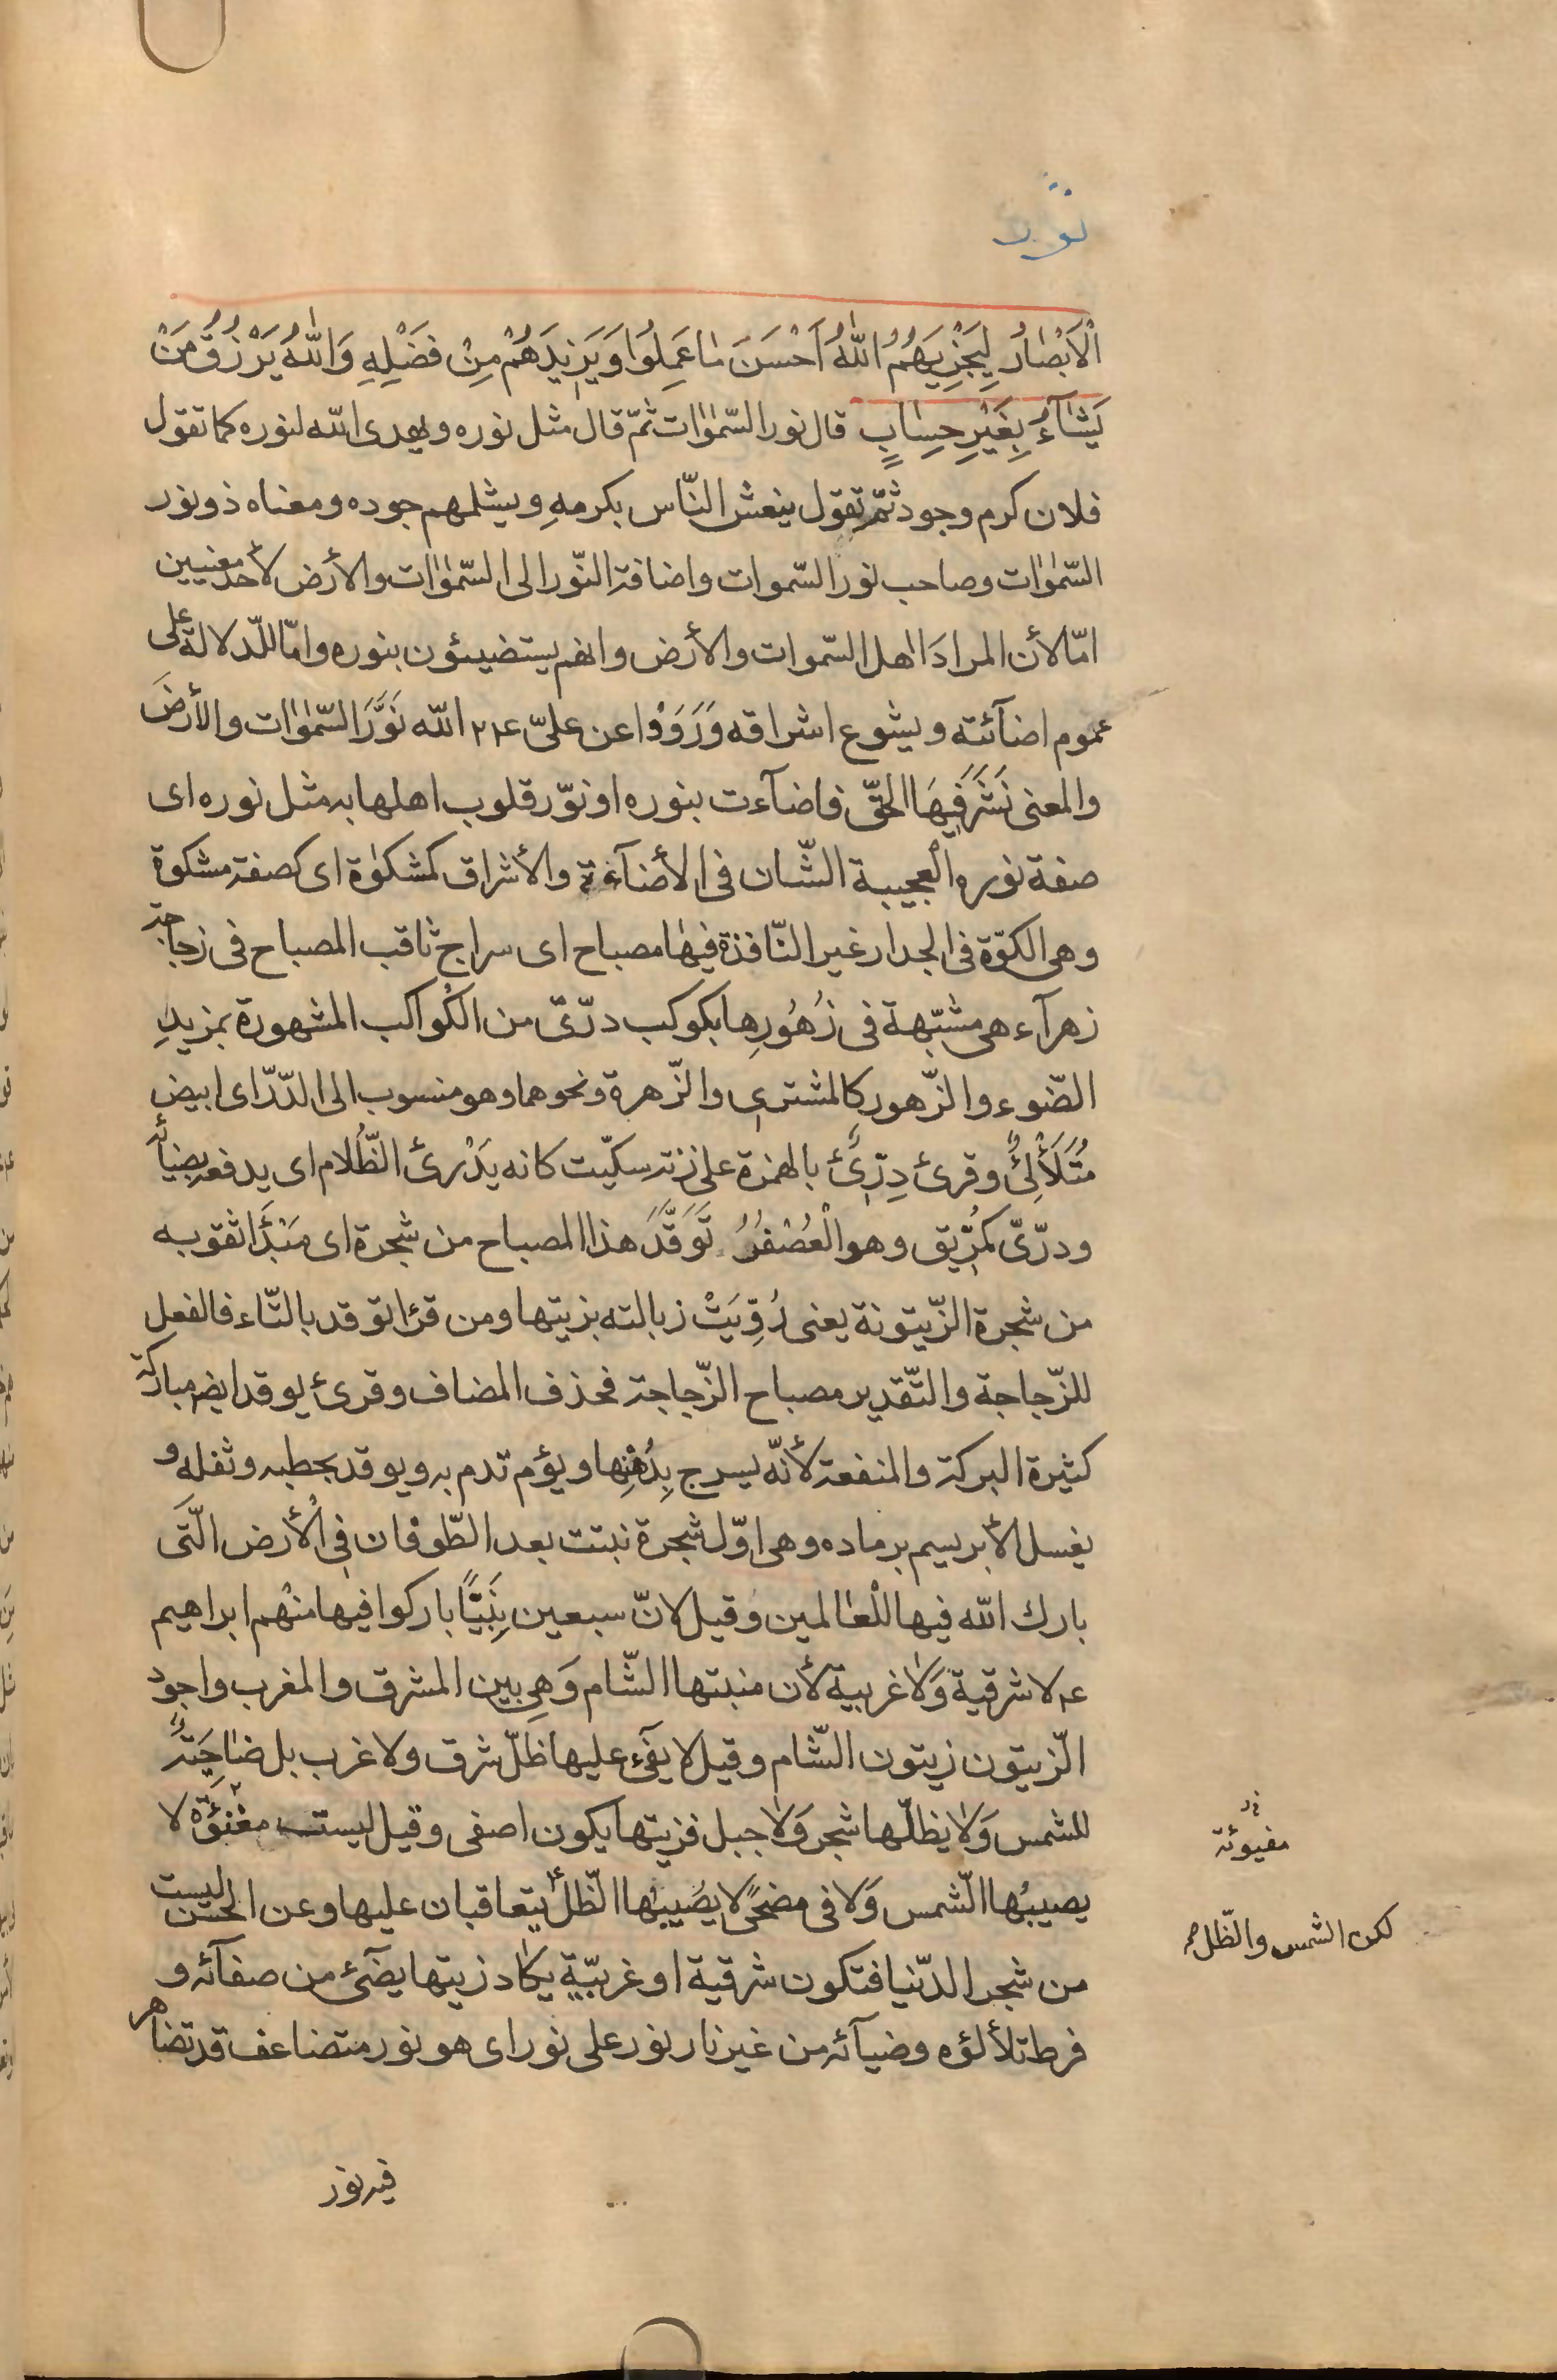 نور
الْاَبْصٰارُ لِيَجْزِيَهُمُ اللّٰهُ اَحْسَنَ مٰا عَمِلُوا وَيَزِيدَهُمْ مِنْ فَضْلِهِ وَاللّٰهُ يَرْزُقُ مَنْ
يَشٰآءُ بِغَيْرِ حِسٰابٍ قال نور السّمٰوٰات ثمّ قال مثل نوره ويهدى اللّه لنوره كما تقول
فلان كرم وجود ثمّ تقول ينعش النّاس بكرمهِ ويشلمهم جوده ومعناه ذو نور
السّمٰوٰات وصاحب نور السّموات واضافة النّور الى السّمٰوٰات والأرض لأحد معنيين
امّا لأن المرادَ اهل السّموات والأرض وانهم يستضيئون بنوره وامّا للّدلالة على
عموم اضآئته ويشوع اشراقه وَرَوَوْا عن علىّ ع٢٢ اللّه نَوَّرَ السّمٰوٰات والأرضَ
والمعنى نَشَرَ فيهَا الحقّ فاضآءت بنوره او نوّر قلوب اهلها به مثل نوره اى
صفة نوره العجيبة الشّان فى الأضآءة والأشراق كمشكوٰة اى كصفة مشكوة
وهى الكوّة فى الجدار غير النّافذة فيهٰا مصباح اى سراج ثاقب المصباح فى زجاجة
زهرآء هى مشبّهة فى زُهُورِها بكوكب درّىّ من الكُواكب المشهورة بمزيدِ
الضّوء والزّهور كالمشترى والزّهرة ونحوهما وهو منسوب الى الدّرّ اى ابيض
مُتَلَأْلِئٌ وقرئ دِرِّئٌ بالهمزة على زنة سكّيت كانه يَدْرئ الظُّلام اى يدفعه بضيائه
ودرّىّ كمُرّيق وهو الْعُصْفُرُ تَوَقَّدَ هذا المصباح من شجرة اى مَبْدَأ ثقوبه
من شجرة الزّيتونة يعنى رُوِّيَتْ زبالته بزيتها ومن قرئ توقد بالتّاء فالفعل
للزّجاجة والتّقدير مصباح الزّجاجة فحذف المضاف وقرئ يوقد ايضا مباركة
كثيرة البركة والمنفعة لأنّه يسرج بِدُهْنِها ويؤم تدم به ويوقد بحطبه وثفله و
يغسل الأبريسم برماده وهى اوّل شجرة نبتت بعد الطّوفان فى الأُرض الّتَى
بارك اللّه فيها للْعٰالمين وقيل لانّ سبعين نَبِيًّا باركوا فيها منْهم ابراهيم
ع٢ لا شرقية وَلٰا غربية لأن منبتها الشّام وَهى بين المشرق والمغرب واجود
الّزيتون زيتون الشّام وقيل لا يفئ عليها ظّلّ شرق ولا غرب بل ضٰاحَيَةٌ
للشمس وَلٰا يظلّها شجر وَلٰا جبل فزيتها يكون اصفى وقيل ليست مفنئوّة لا
يصيبُها الّشمس وَلا فى مضحًى لا يصُيبُها الّظلّ يتعاقبان عليها وعن الحسن ليست
من شجر الدّنيا فتكون شرقية او غربيّة يكٰاد زيتها يضَئ من صفآئه و
فرط تلألؤه وضيآئه من غير نار نور على نور اى هو نور متضاعف قد تضاهر
مفيوئة
لكن الشمس والّظلّ
فيه نور